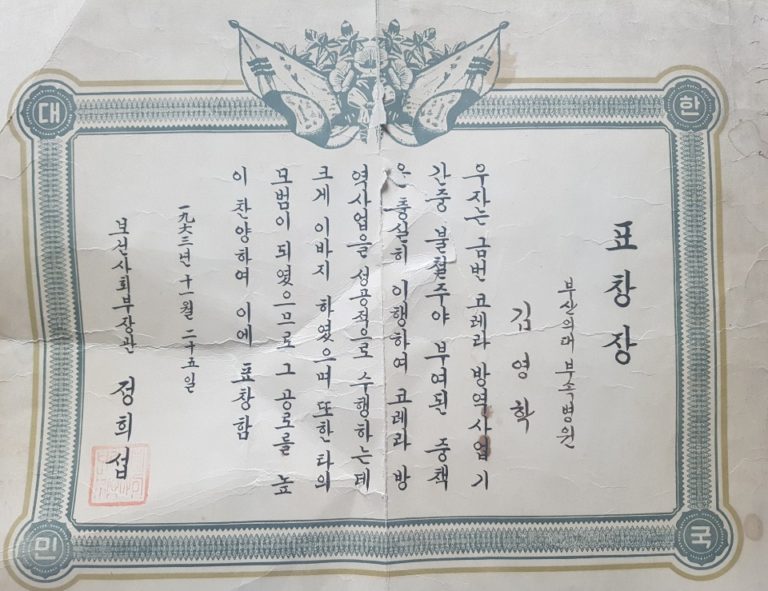 대한민국
표창장
부산의대 부속병원
김영학
우자는 금번 코레라 방역사업 기
간중 불철주야 부여된 중책
을 충실히 이행하여 코레라 방
역사업을 성공적으로 수행하는데
크게 이바지 하였으며 또한 타의
모범이 되였으므로 그 공로를 높
이 찬양하여 이에 표창함
一九六三년 十一월 二十五일
보건사회부장관 정희섭